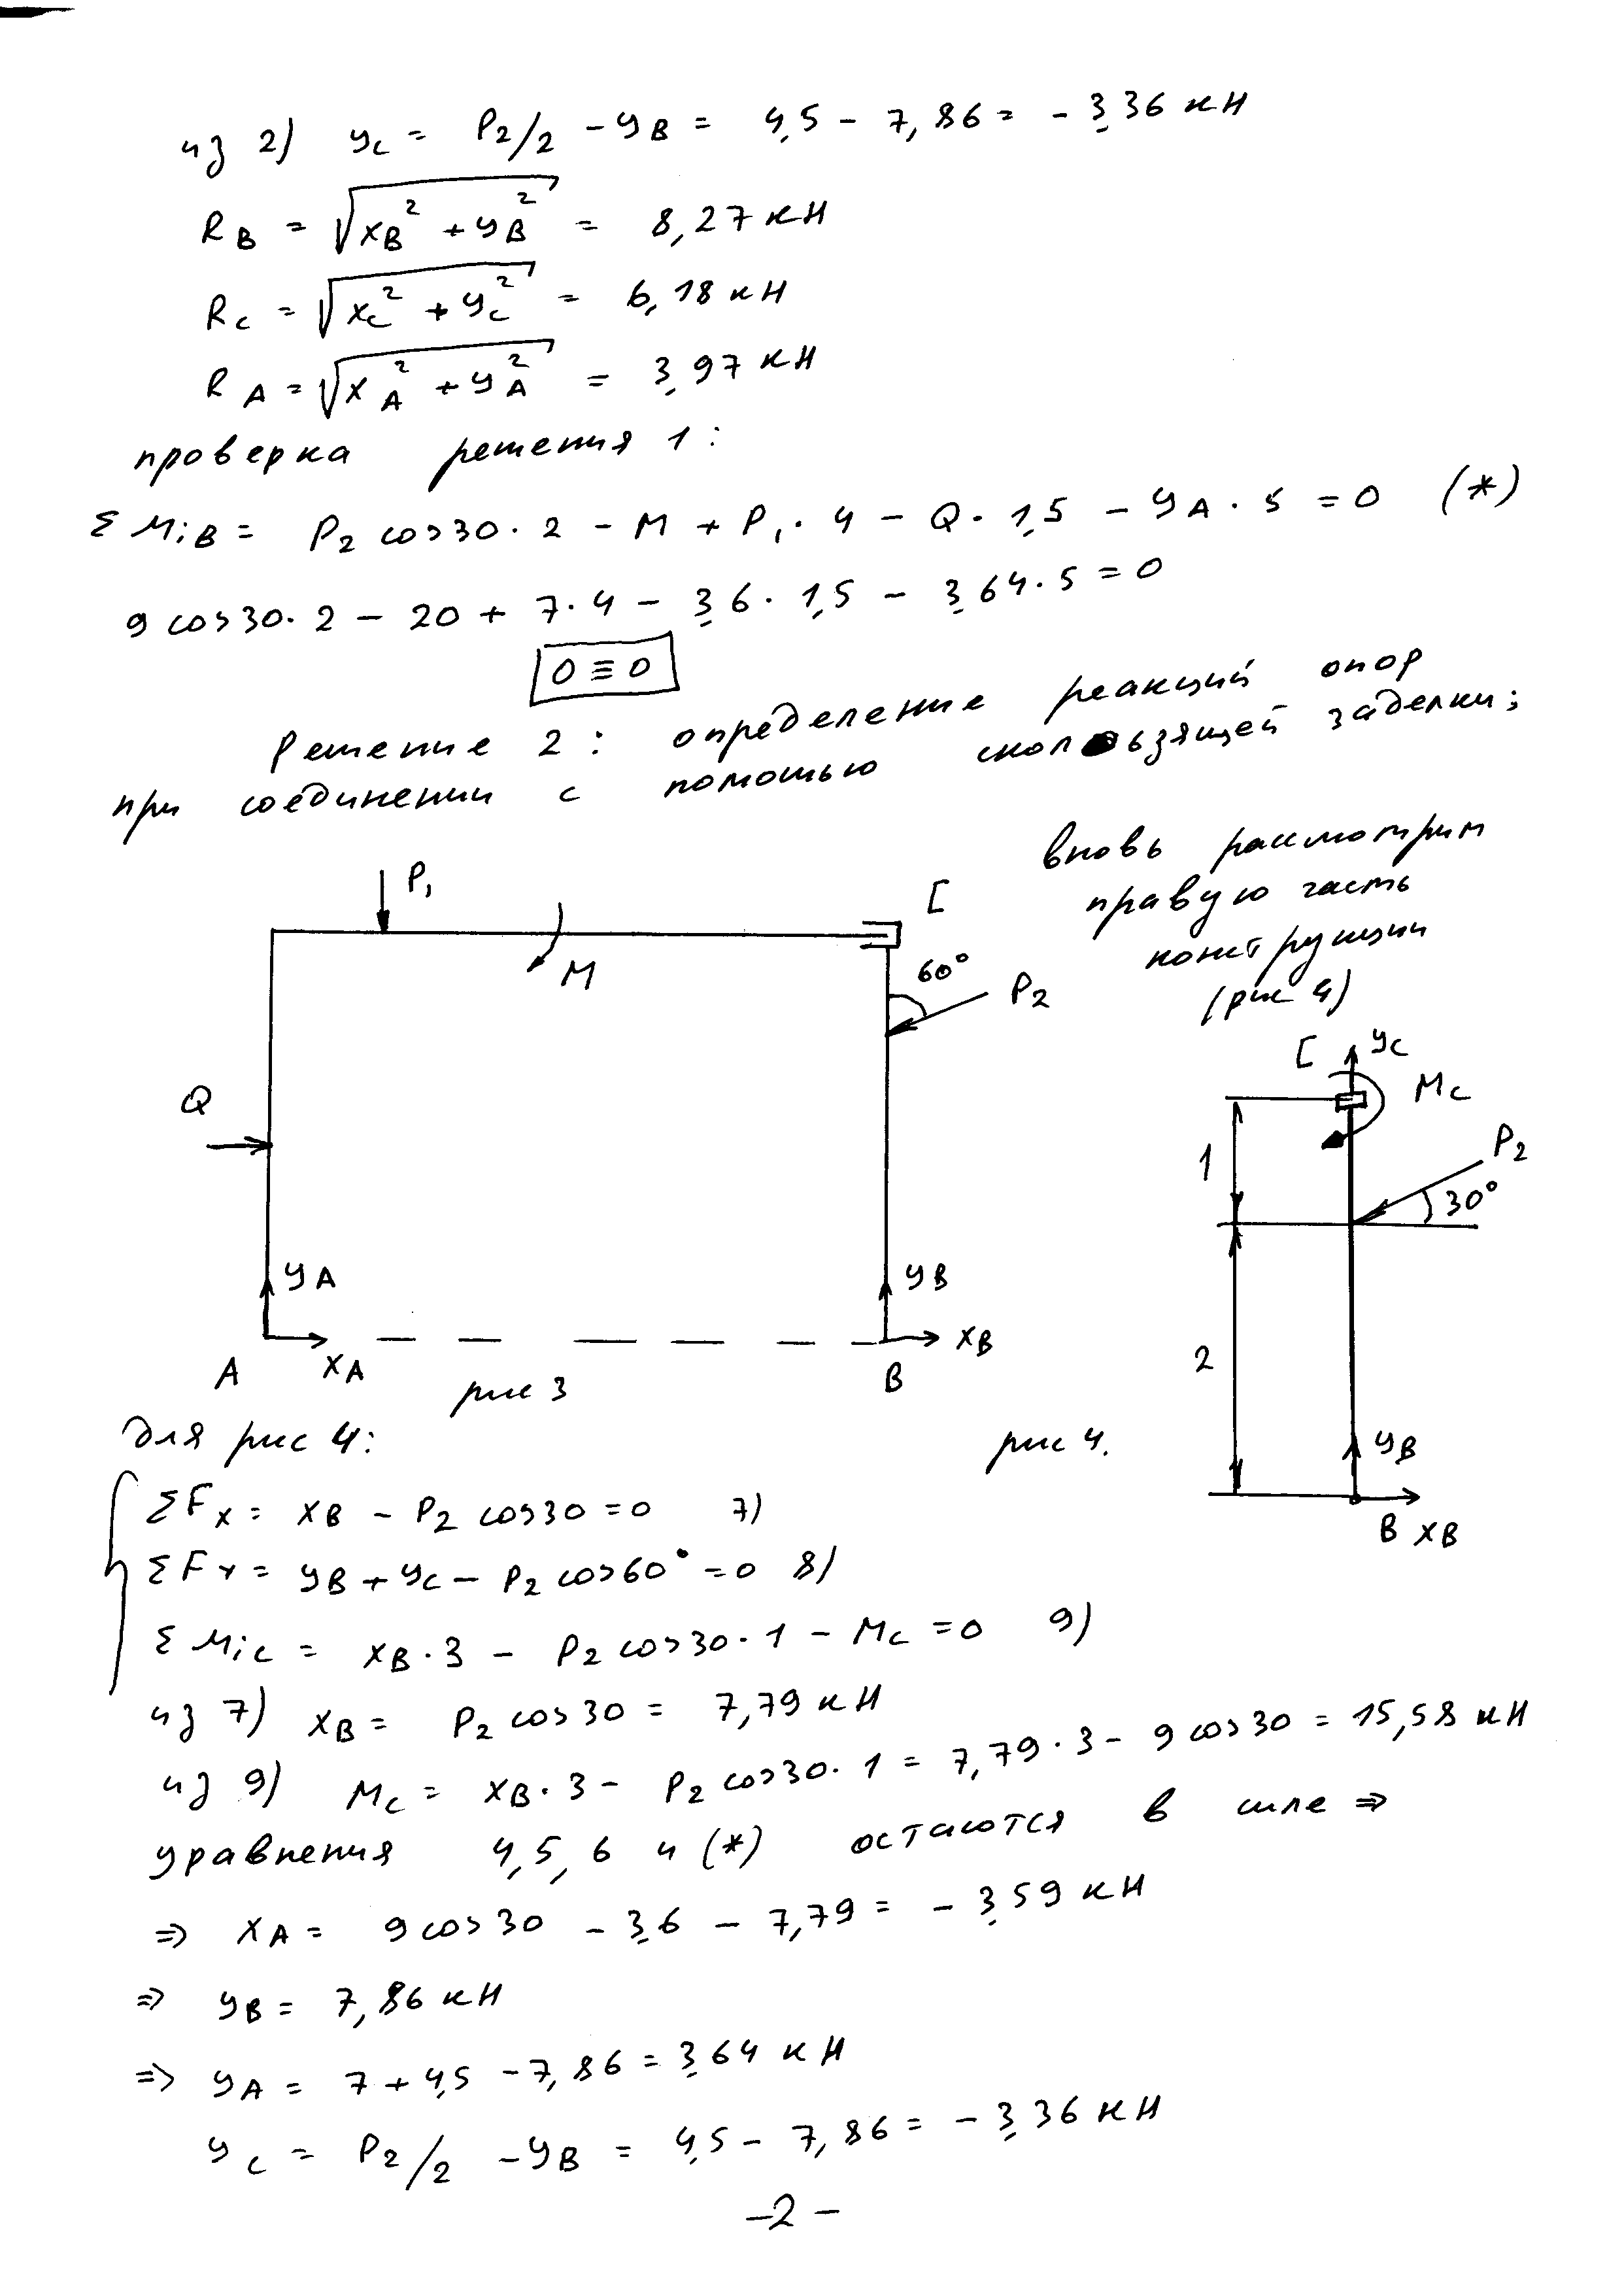 из 2) yC = P2/2 - yB = 4,5 - 7,86 = - 3,36 кН
RB = √xB² + yB² = 8,27 кН
RC = √xC² + yC² = 6,18 кН
RA = √xA² + yA² = 3,97 кН
проверка решения 1:
ΣMiB = P2 cos30·2 - M + P1·4 - Q·1,5 - yA·5 = 0 (*)
9 cos30·2 - 20 + 7·4 - 3,6·1,5 - 3,64·5 = 0
0 ≡ 0
Решение 2: определение реакций опор
при соединении с помощью скользящей заделки;
вновь рассмотрим
правую часть
конструкции
(рис 4)
P1
C
M
60°
P2
Q
yA
yB
A
xA
B
xB
рис 3
C
yC
MC
P2
1
30°
2
yB
B xB
рис 4.
для рис 4:
ΣFx = xB - P2 cos30 = 0 7)
ΣFy = yB + yC - P2 cos60° = 0 8)
ΣMiC = xB·3 - P2 cos30·1 - MC = 0 9)
из 7) xB = P2 cos30 = 7,79 кН
из 9) MC = xB·3 - P2 cos30·1 = 7,79·3 - 9 cos30 = 15,58 кН
уравнения 4,5,6 и (*) остаются в силе ⇒
⇒ xA = 9 cos30 - 3,6 - 7,79 = - 3,59 кН
⇒ yB = 7,86 кН
⇒ yA = 7 + 4,5 - 7,86 = 3,64 кН
yC = P2/2 - yB = 4,5 - 7,86 = - 3,36 кН
-2-